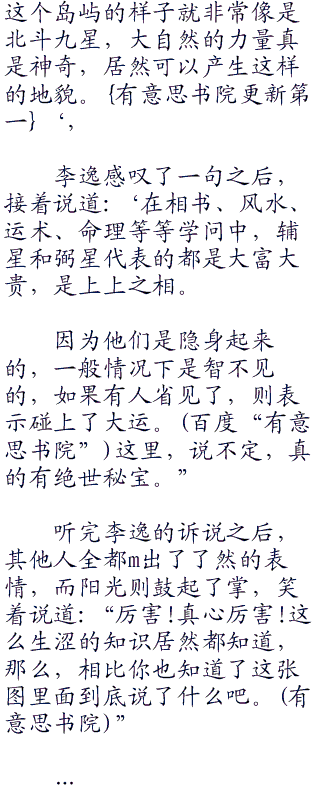 这个岛屿的样子就非常像是
北斗九星，大自然的力量真
是神奇，居然可以产生这样
的地貌。{有意思书院更新第
一}‘，
李逸感叹了一句之后，
接着说道：‘在相书、风水、
运术、命理等等学问中，辅
星和弼星代表的都是大富大
贵，是上上之相。
因为他们是隐身起来
的，一般情况下是智不见
的，如果有人省见了，则表
示碰上了大运。(百度“有意
思书院”)这里，说不定，真
的有绝世秘宝。”
听完李逸的诉说之后，
其他人全都m出了了然的表
情，而阳光则鼓起了掌，笑
着说道：“厉害!真心厉害!这
么生涩的知识居然都知道，
那么，相比你也知道了这张
图里面到底说了什么吧。(有
意思书院)”
…